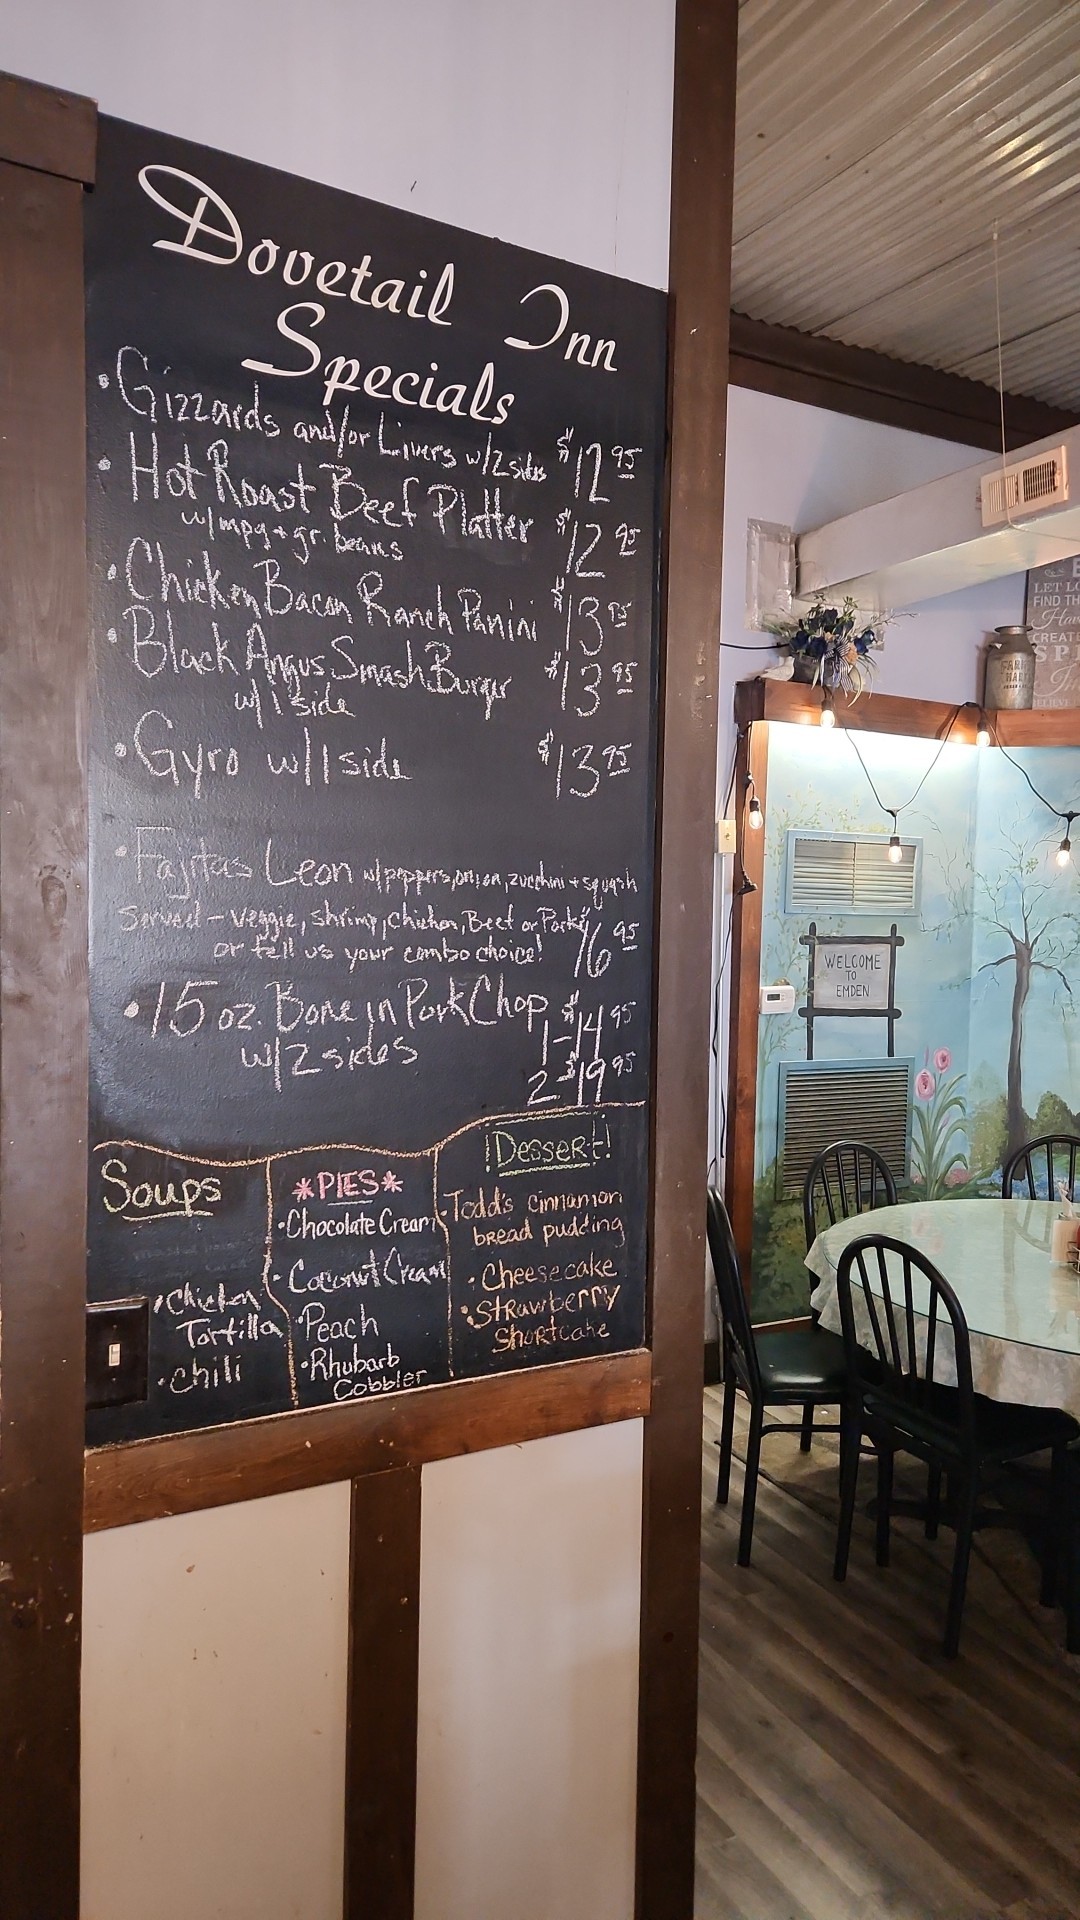 Dovetail Inn
Specials
• Gizzards and/or Livers w/2 sides $12 95
• Hot Roast Beef Platter $12 95
w/mpg + gr. beans
• Chicken Bacon Ranch Panini $13 95
• Black Angus Smash Burger $13 95
w/1 side
• Gyro w/1 side $13 95
• Fajitas Leon w/peppers, onion, zucchini + squash
Served - veggie, shrimp, chicken, Beef or Pork $16 95
or tell us your combo choice!
• 15 oz. Bone in Pork Chop 1-$14 95
w/2 sides 2-$19 95
Soups
• Chicken
Tortilla
• Chili
*PIES*
• Chocolate Cream
• Coconut Cream
• Peach
• Rhubarb
Cobbler
!Dessert!
• Todd's cinnamon
bread pudding
• Cheesecake
• Strawberry
Shortcake
WELCOME
TO
EMDEN
LET
FIND
CREATE
FARM